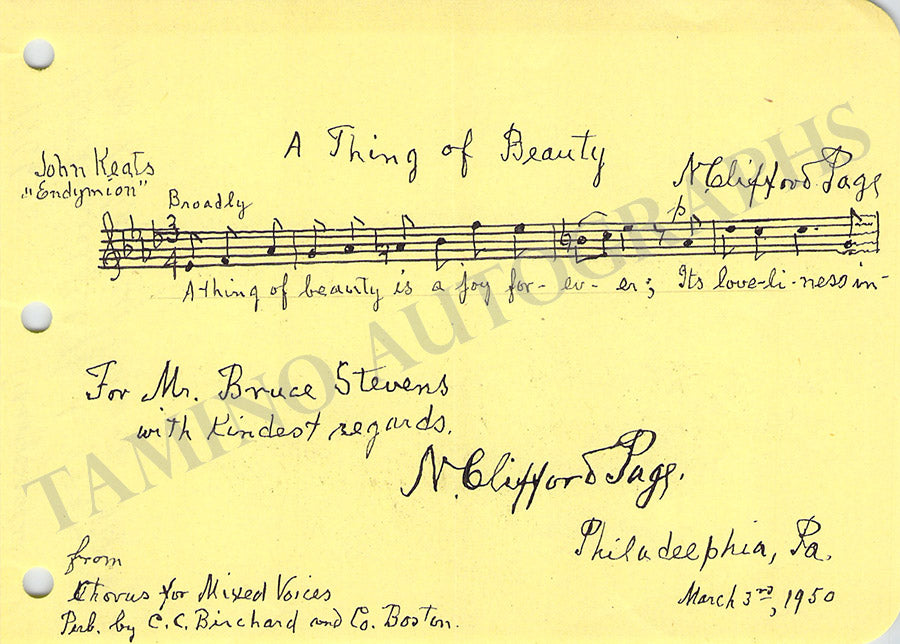 A Thing of Beauty
John Keats
"Endymion"
N. Clifford Page
Broadly
3
4
p
A thing of beauty is a joy for- ev- er; Its love-li-ness in-
For Mr. Bruce Stevens
with kindest regards.
N. Clifford Page.
Philadelphia, Pa.
March 3rd, 1950
from
Chorus for Mixed Voices
Pub. by C. C. Birchard and Co. Boston.
TAMINO AUTOGRAPHS